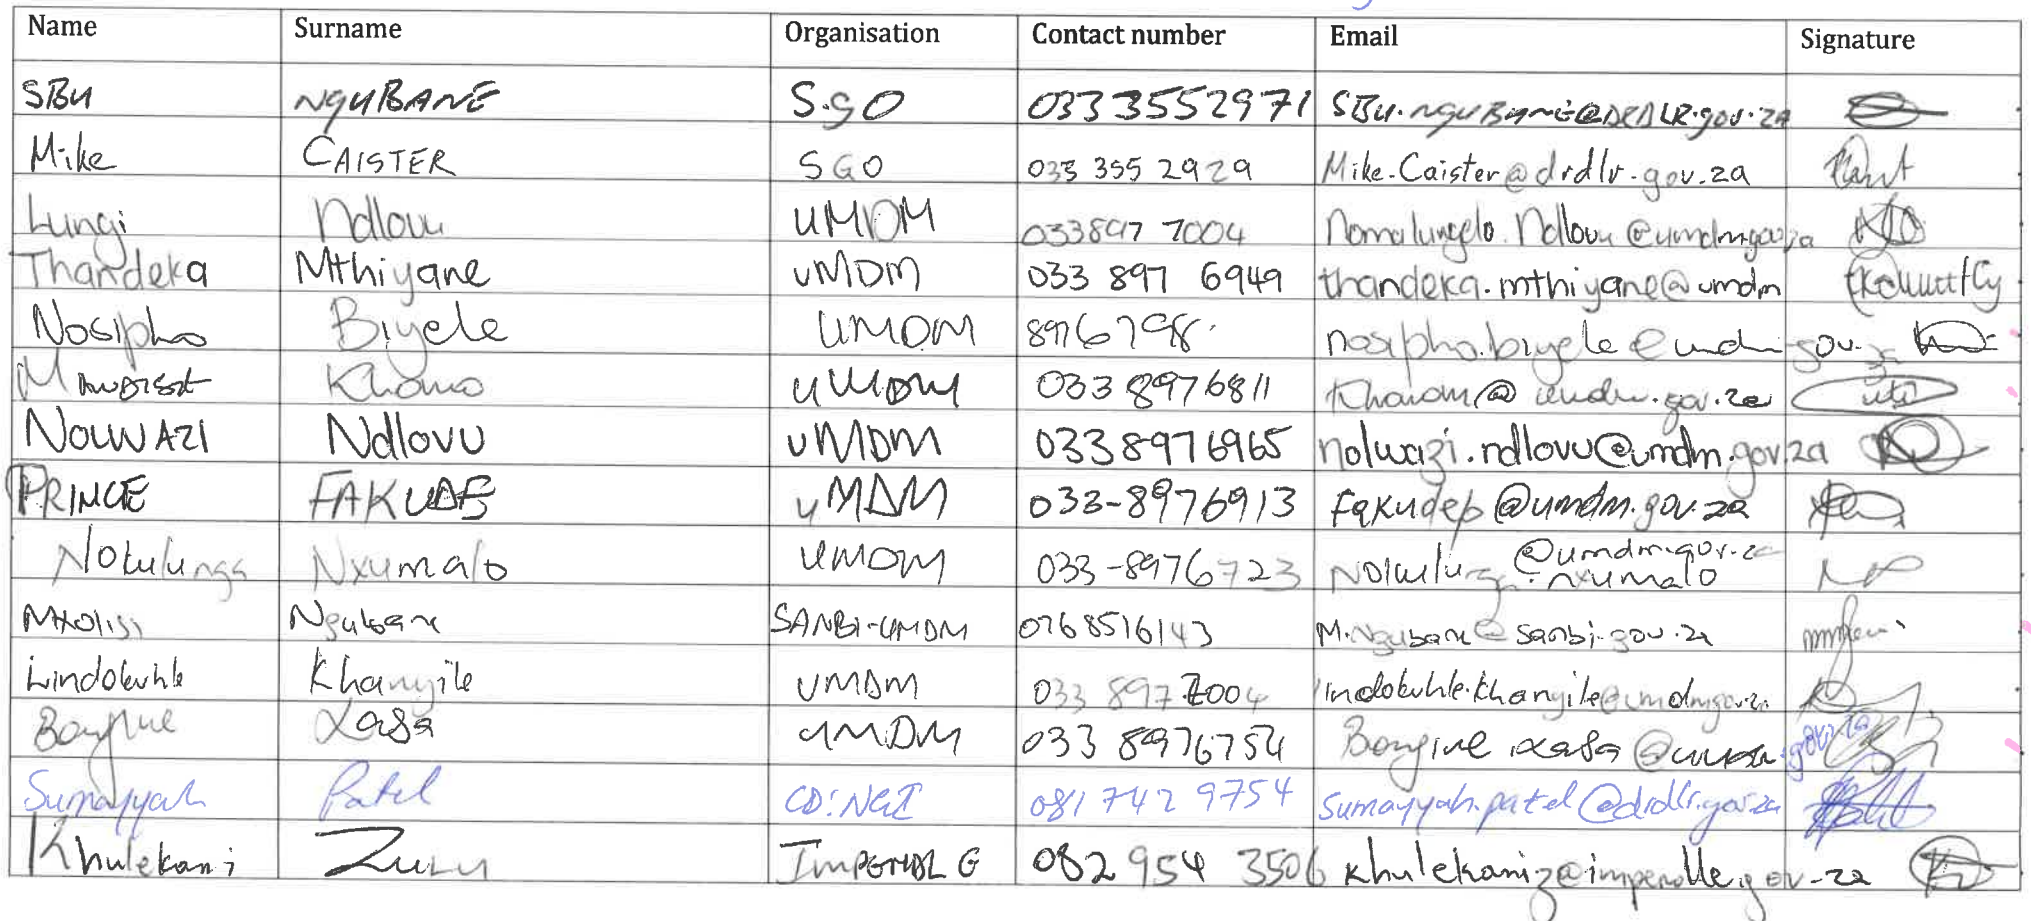 Name Surname Organisation Contact number Email Signature
SBU NGUBANE S.GO 033 3552971 SBU.NGUBANE@DRDLR.gov.za
Mike CAISTER SGO 033 355 2929 Mike.Caister@drdlr.gov.za
Lungi Ndlovu UMDM 033897 7004 Nomalungelo.Ndlovu@umdm.gov.za
Thandeka Mthiyane uMDM 033 897 6949 thandeka.mthiyane@umdm
Nosipho Biyele UMDM 8976798 nosipho.biyele@umdm.gov.za
Khomo UMDM 033 8976811 @umdm.gov.za
NOLWAZI Ndlovu uMDM 033 8976965 nolwazi.ndlovu@umdm.gov.za
PRINCE FAKUDE uMDM 033-8976913 Fakudep@umdm.gov.za
Nokulunga Nxumalo UMDM 033-8976723 Nokulunga.nxumalo@umdm.gov.za
Mxolisi Ngubane SANBI-UMDM 0768516143 M.Ngubane@sanbi.gov.za
Lindokuhle Khanyile UMDM 033 897 7004 lindokuhle.khanyile@umdm.gov.za
Bongiwe Xaba uMDM 033 8976754 Bongiwe.xaba@umdm.gov.za
Sumayyah Patel CD:NGI 081 742 9754 sumayyah.patel@drdlr.gov.za
Khulekani Zulu 082 954 3506